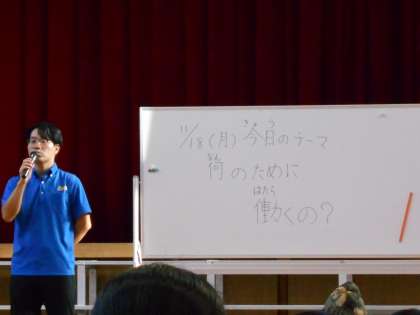 きょう
11/18(月)今日のテーマ
なん
何のために
はたら
働くの?